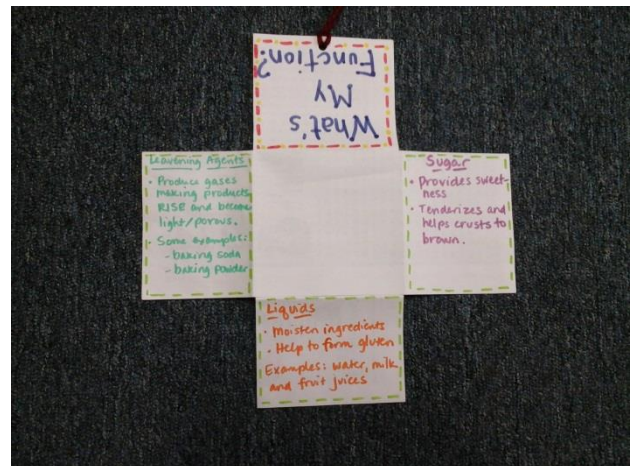 What's
My
Function?
Leavening Agents
• Produce gases
making products
RISE and become
light/porous.
• Some examples:
- baking soda
- baking powder
Sugar
• Provides sweet-
ness
• Tenderizes and
helps crusts to
brown.
Liquids
• Moisten ingredients
• Help to form gluten
Examples: water, milk,
and fruit juices